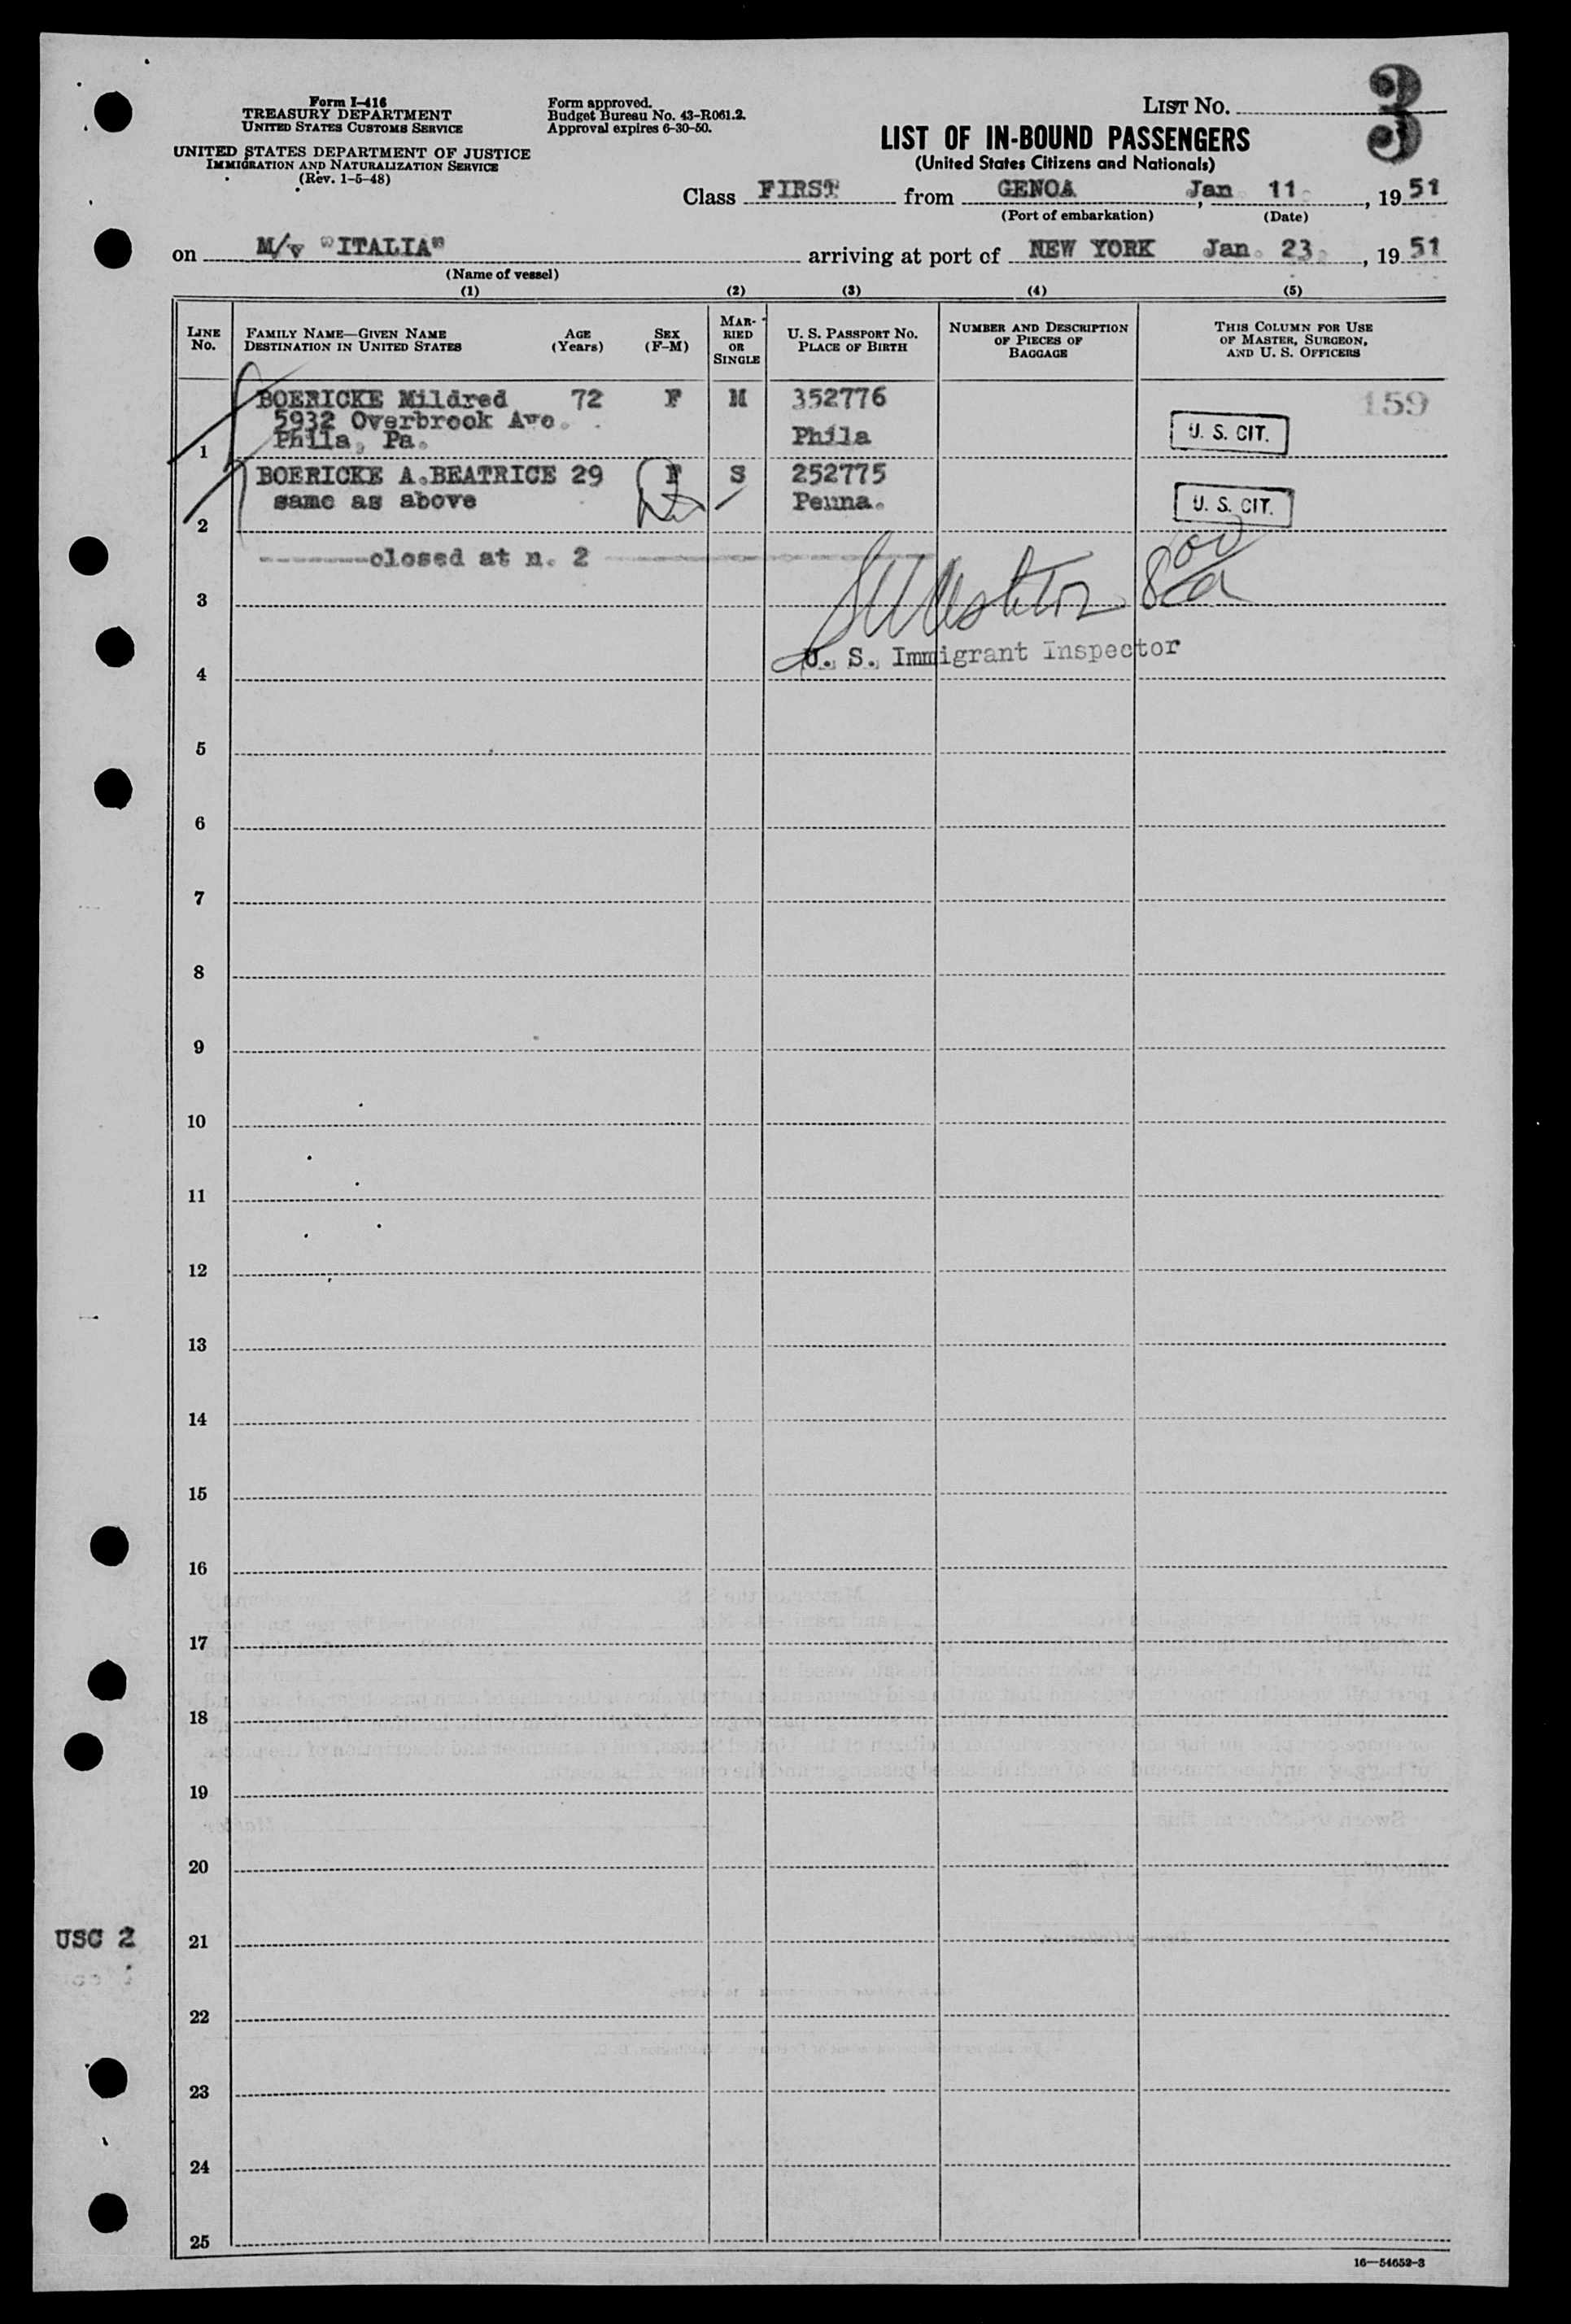 Form I-416
TREASURY DEPARTMENT
UNITED STATES CUSTOMS SERVICE
UNITED STATES DEPARTMENT OF JUSTICE
IMMIGRATION AND NATURALIZATION SERVICE
(Rev. 1-5-48)
Form approved.
Budget Bureau No. 43-R061.2.
Approval expires 6-30-50.
LIST NO. 3
LIST OF IN-BOUND PASSENGERS
(United States Citizens and Nationals)
Class FIRST from GENOA, Jan 11, 1951
(Port of embarkation) (Date)
on M/v "ITALIA" arriving at port of NEW YORK Jan. 23, 1951
(Name of vessel)
(1) (2) (3) (4) (5)
LINE NO.
FAMILY NAME—GIVEN NAME
DESTINATION IN UNITED STATES
AGE (Years)
SEX (F-M)
MARRIED OR SINGLE
U. S. PASSPORT NO.
PLACE OF BIRTH
NUMBER AND DESCRIPTION OF PIECES OF BAGGAGE
THIS COLUMN FOR USE OF MASTER, SURGEON, AND U. S. OFFICERS
BOERICKE Mildred 72 F M 352776 159
5932 Overbrook Ave.
Phila, Pa. Phila U. S. CIT.
1
BOERICKE A.BEATRICE 29 F S 252775
same as above Penna. U. S. CIT.
2
closed at n. 2
3
U. S. Immigrant Inspector
4
5
6
7
8
9
10
11
12
13
14
15
16
17
18
19
20
USC 2 21
22
23
24
25
16—54652-3